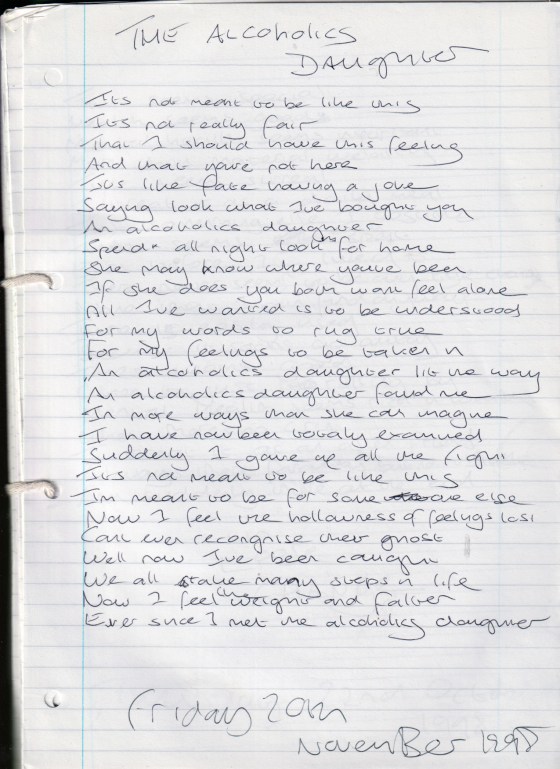 THE ALCOHOLICS
DAUGHTER
Its not meant to be like this
Its not really fair
That I should have this feeling
And that youre not here
Its like fate having a joke
Saying look what I've bought you
An alcoholics daughter
Spends all night looking for home
She may know where youve been
If she does you both wont feel alone
All I've wanted is to be understood
For my words to rug true
For my feelings to be taken in
An alcoholics daughter lit the way
An alcoholics daughter found me
In more ways than she can imagine
I have now been totally examined
Suddenly I gave up all the fight
Its not meant to be like this
I'm meant to be for some one else
Now I feel the hollowness of feelings lost
Cant ever recongnise their ghost
Well now I've been caught
We all take many steps in life
Now I feel the weight and falter
Ever since I met the alcoholics daughter
Friday 20th
November 1998